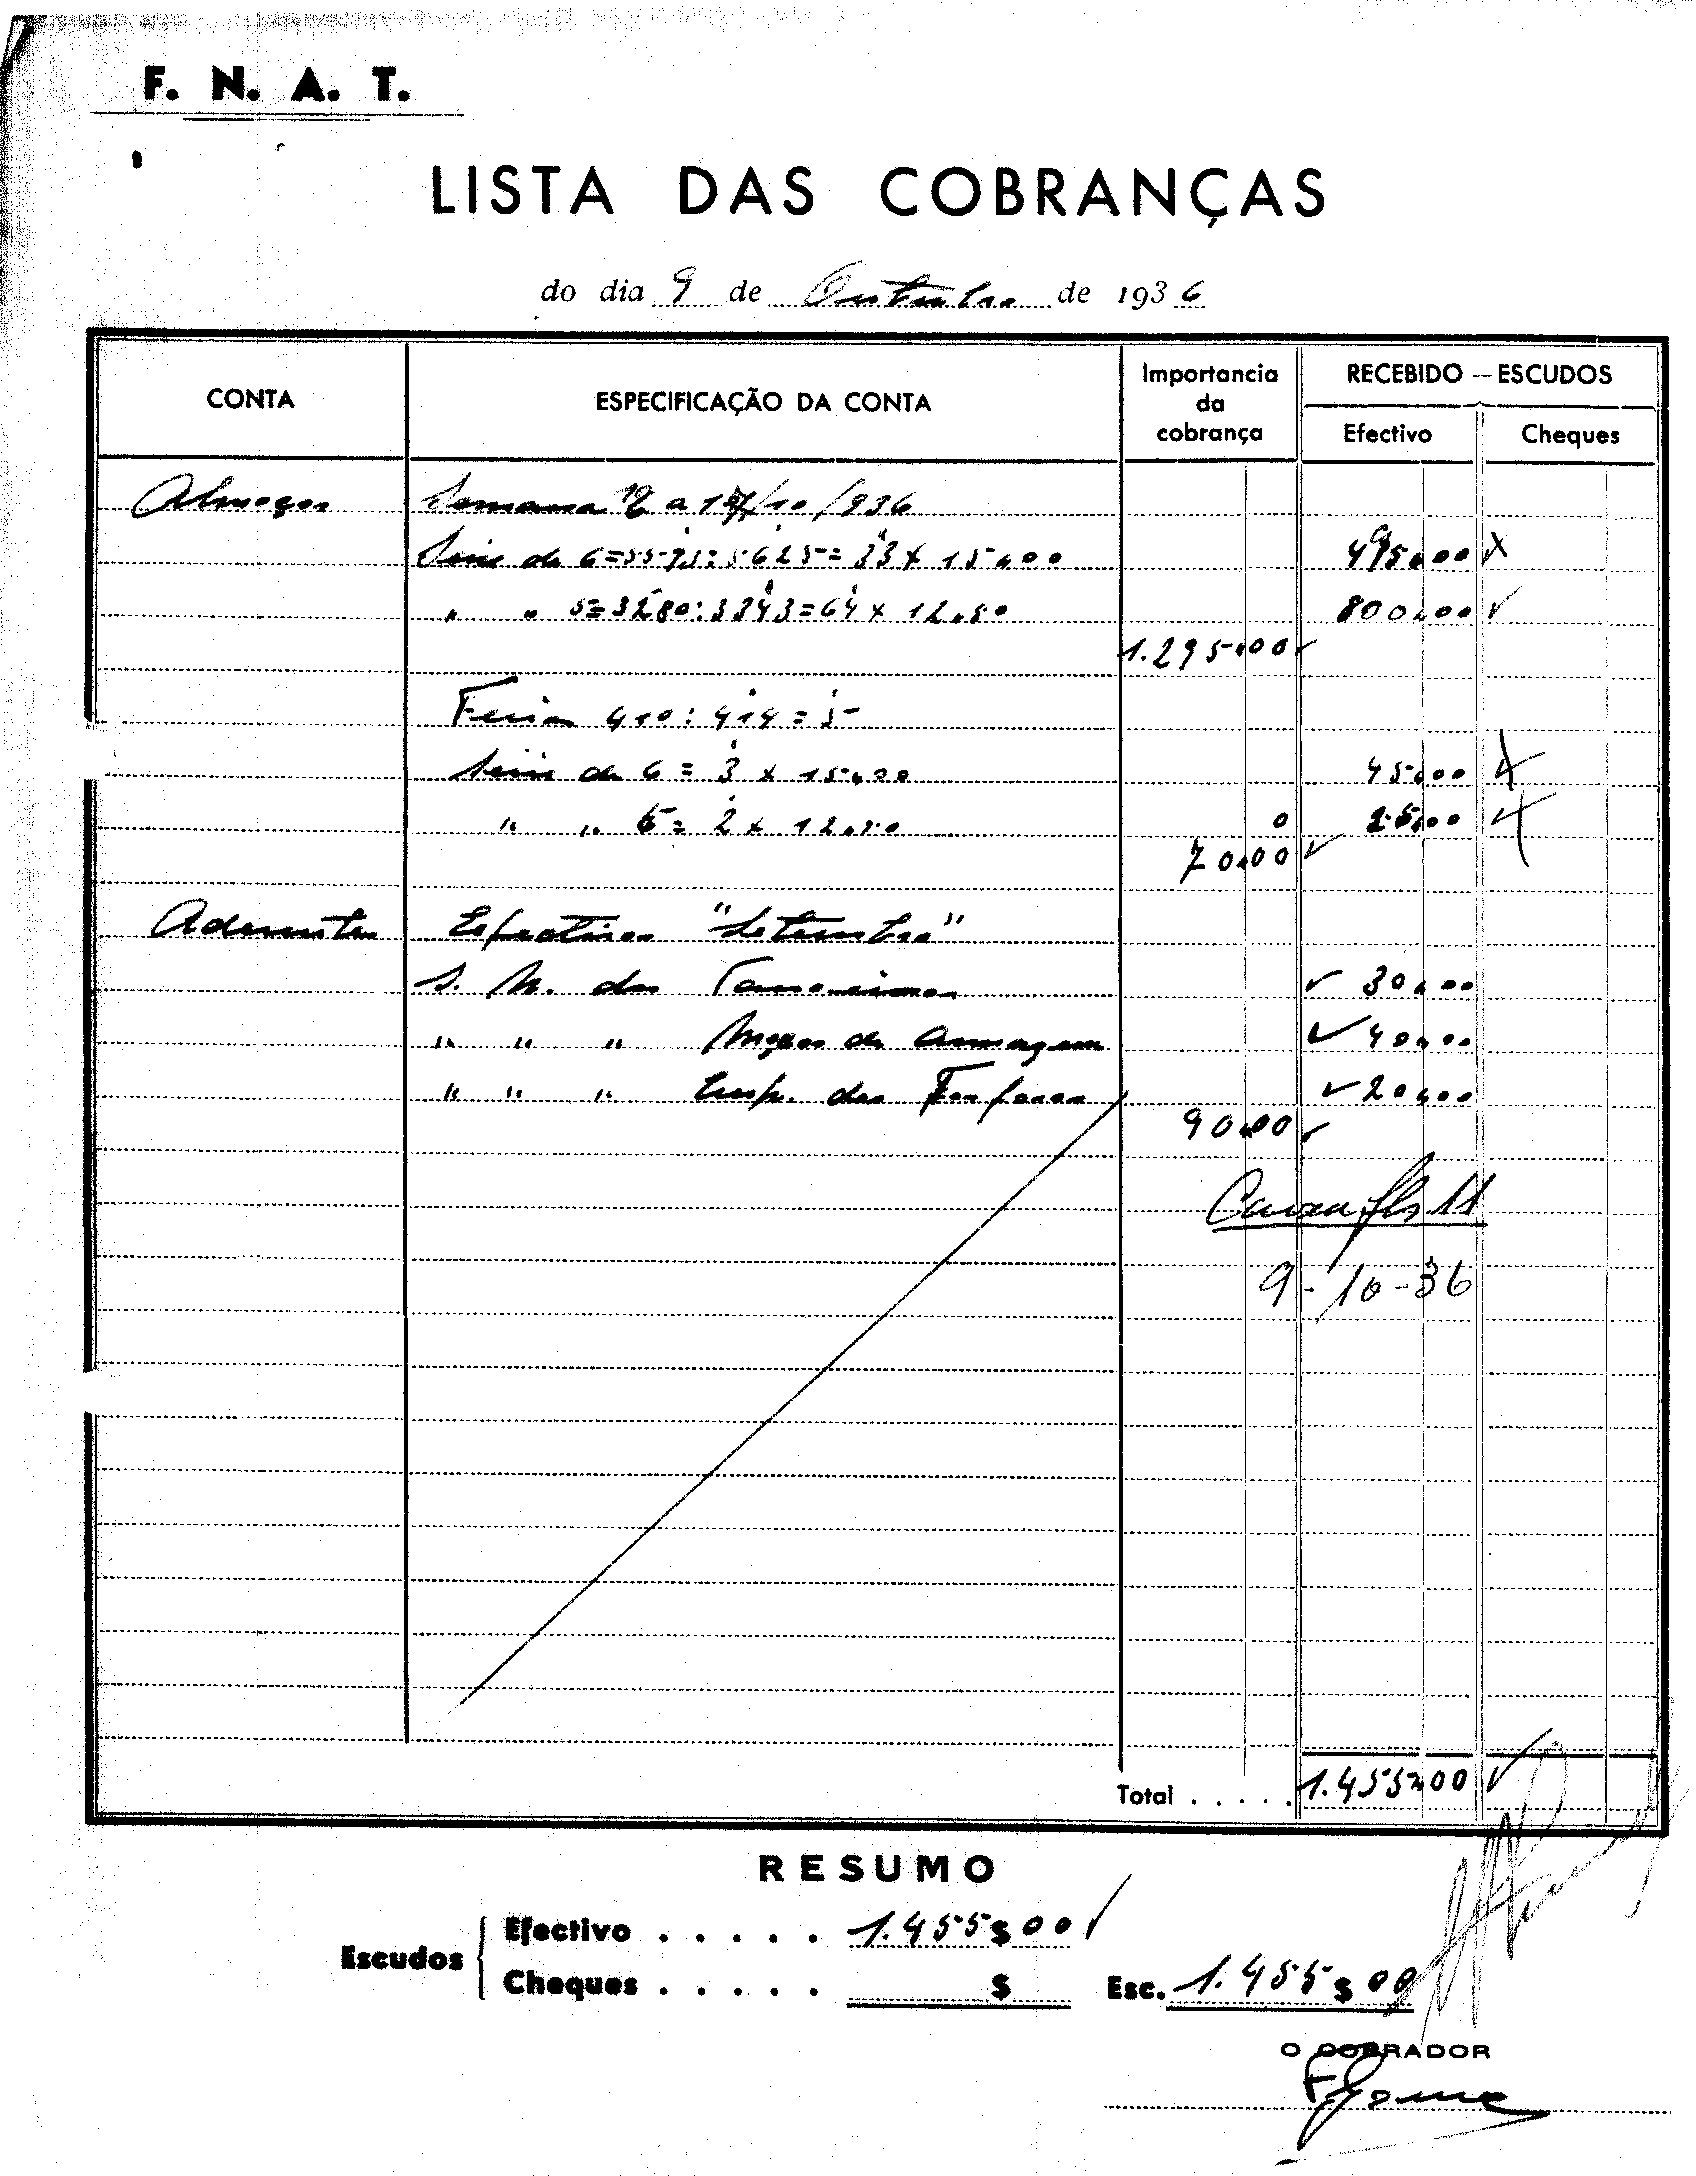 F. N. A. T.
LISTA DAS COBRANÇAS
do dia 9 de Outubro de 1936
CONTA
ESPECIFICAÇÃO DA CONTA
Importancia da cobrança
RECEBIDO — ESCUDOS
Efectivo
Cheques
Almoços Semana 12 a 17/10/936
Série de 6=5593:5625=33 x 15,00 495,00
" " 5=3280:3343=64 x 12,50 800,00
1.295,00
Feria 410:414=5
Série de 6=3 x 15,00 45,00
" " 5=2 x 12,50 25,00
70,00
Aderentes Efectivos "Setembro"
S. N. dos Tanoeiros 30,00
" " " Moços de Armazem 40,00
" " " Emp. dos Fosforos 20,00
90,00
Caixa fls 11
9-10-36
Total . . . . . 1.455,00
RESUMO
Escudos
Efectivo . . . . . 1.455$00
Cheques . . . . . $
Esc. 1.455$00
O COBRADOR